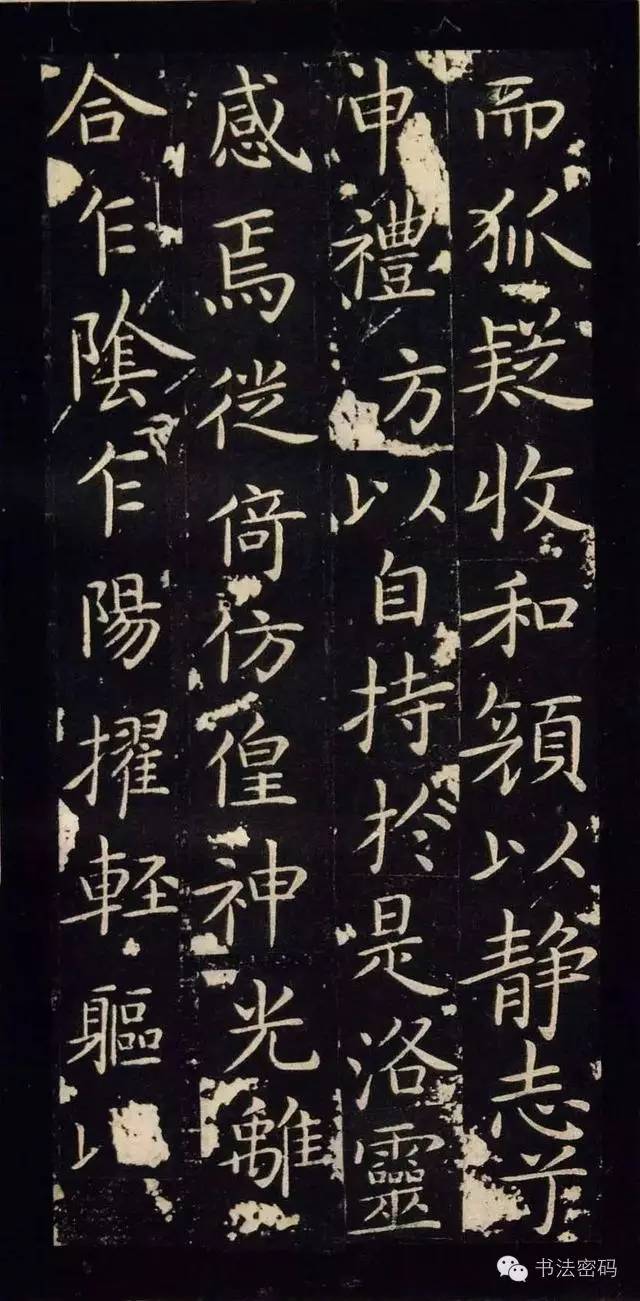 而狐疑收和顔以静志兮
申禮方以自持於是洛靈
感焉徙倚彷徨神光離
合乍陰乍陽擢輕軀以
书法密码